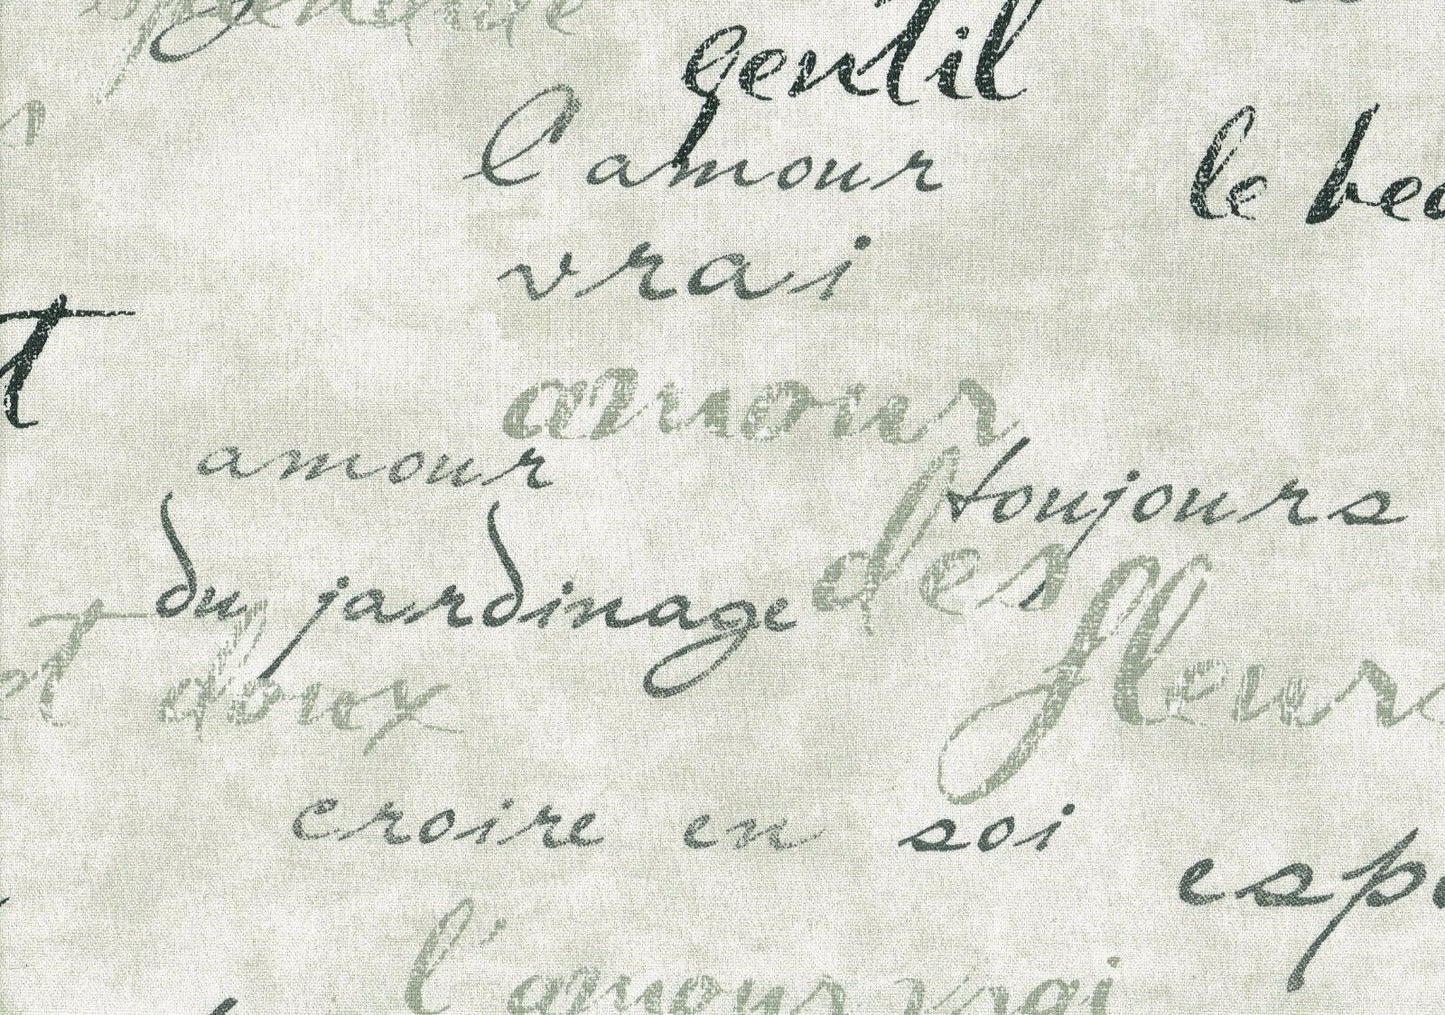 gentil
L'amour
le
vrai
amour
amour
toujours
du jardinage
des
fleurs
doux
croire en soi
l'amour vrai